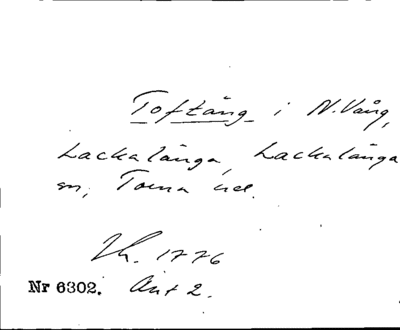 Toftäng i N. Vång,
Lackalänga, Lackalänga
sn, Torna hd.
Sk. 1776
Nr 6302. Akt 2.